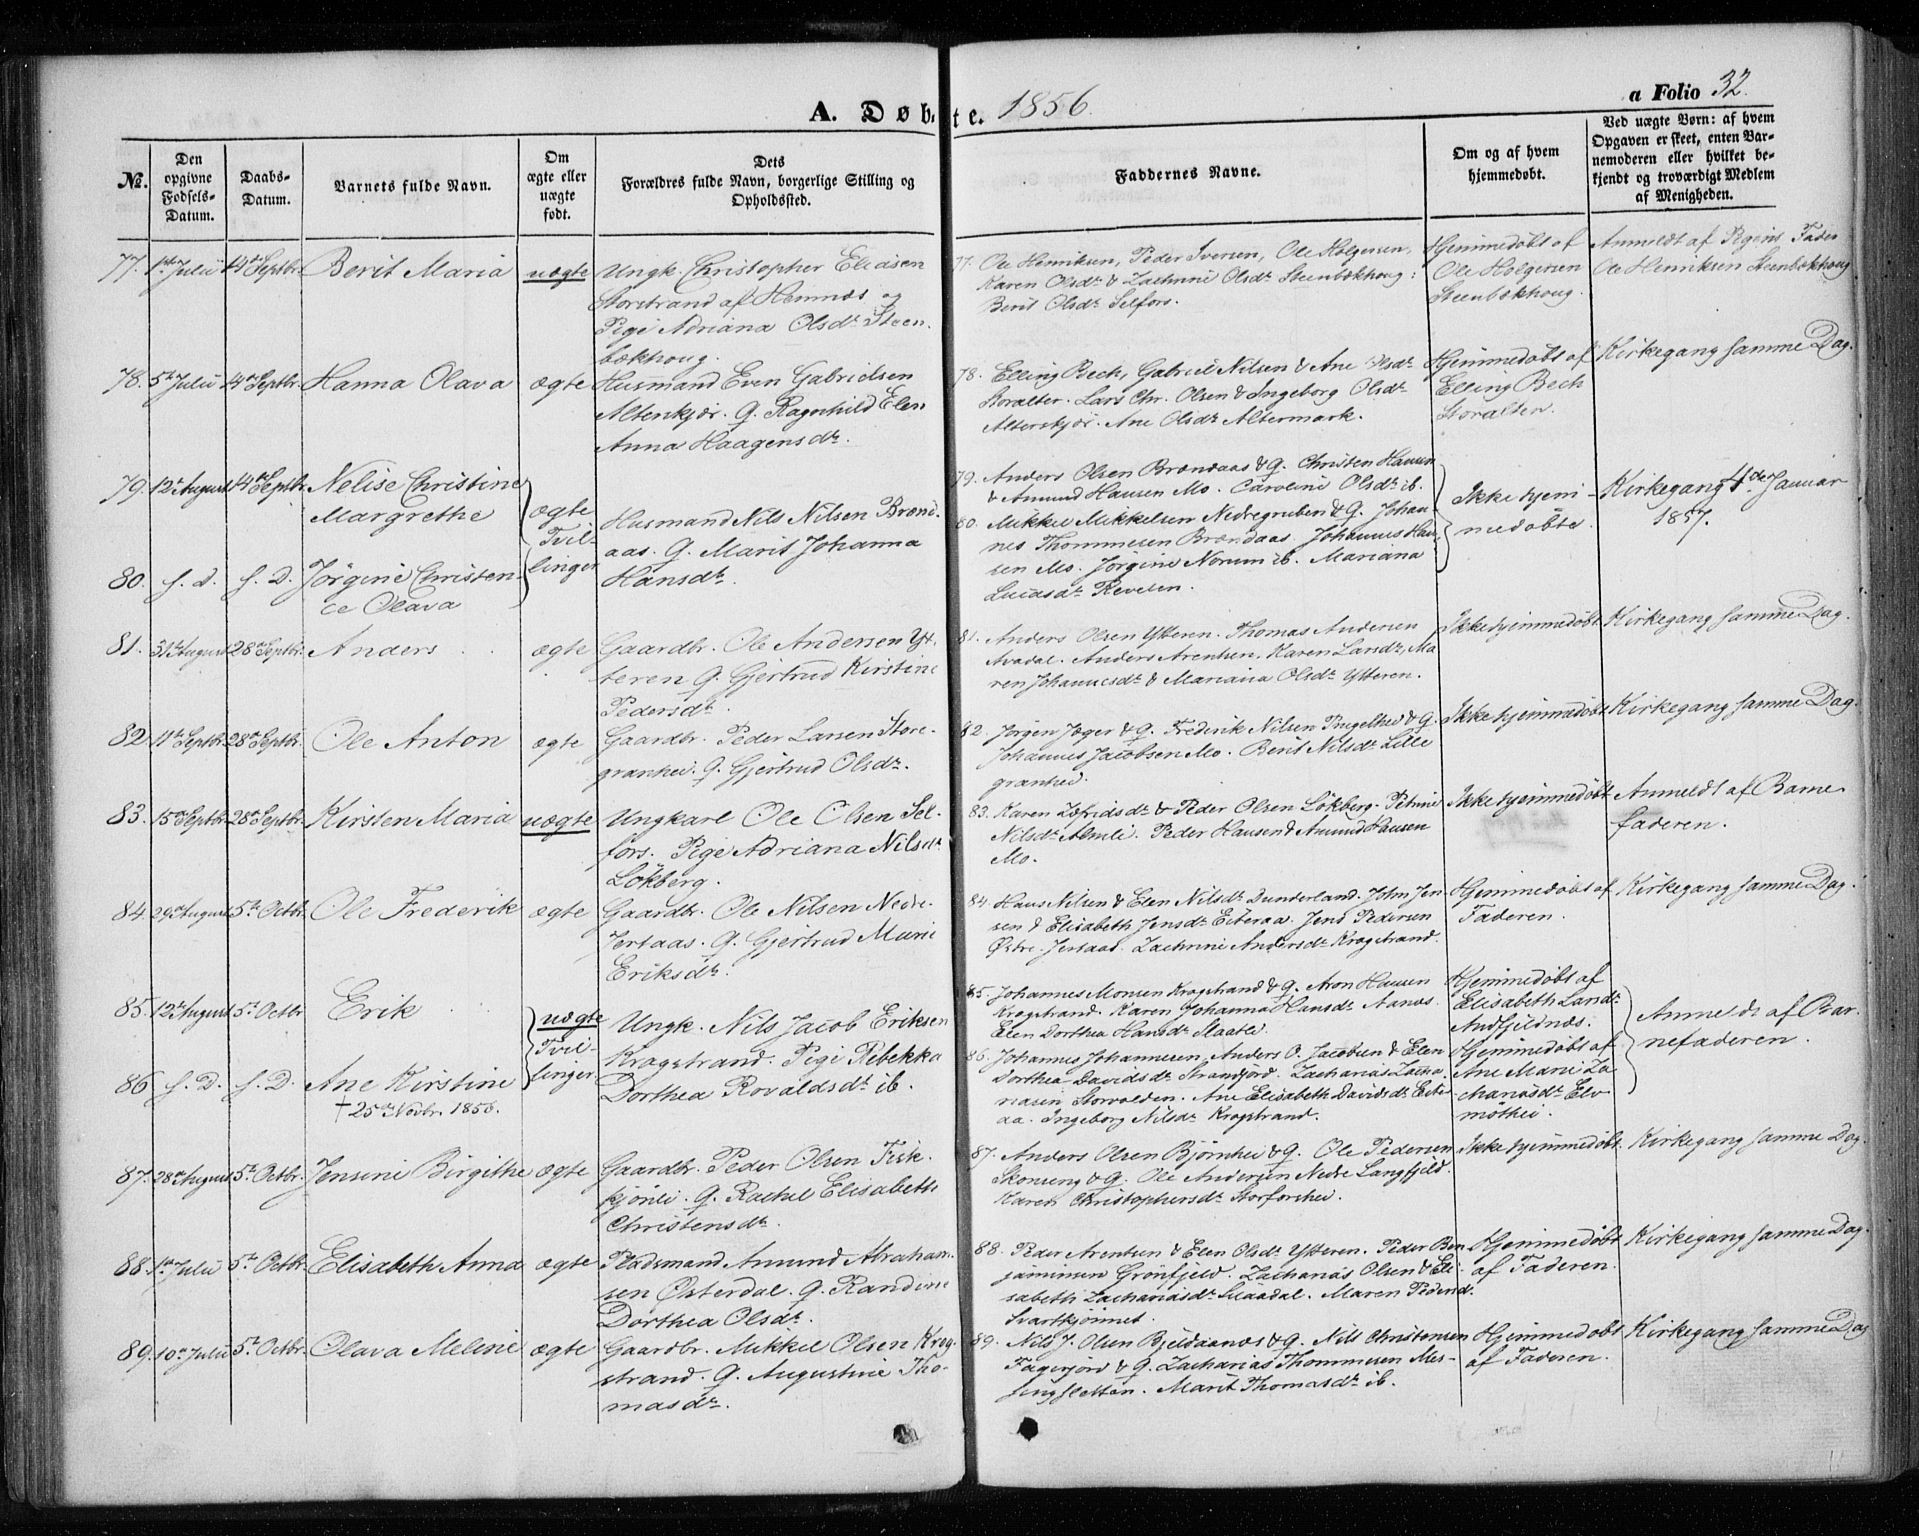 A. Døbte. 1856.
a Folio 32.
No.
Den opgivne Fødsels-Datum.
Daabs-Datum.
Barnets fulde Navn.
Om ægte eller uægte født.
Dets Forældres fulde Navn, borgerlige Stilling og Opholdssted.
Faddernes Navne.
Om og af hvem hjemmedøbt.
Ved uægte Børn: af hvem Opgaven er skeet, enten Barnemoderen eller hvilket bekjendt og troværdigt Medlem af Menigheden.
77. 1ste Julii 14de Septbr. Berit Maria uægte Ungk. Christopher Eliasen
Storstrand af Hemnæs og
Pige Adriana Olsdr. Steen-
bækhoug.
77. Ole Henriksen, Peder Iversen, Ole Holgersen,
Karen Olsdr. & Zachrine Olsdr. Steenbækhoug.
Berit Olsdr. Selfors.
Hjemmedøbt af
Ole Holgersen
Steenbækhoug.
Anmeldt af Pigens Fader
Ole Henriksen Steenbækhoug
78. 5te Julii 14de Septbr. Hanna Olava ægte Husmand Even Gabrielsen
Altenkjør. Q. Ragnhild Elen
Anna Haagensdr.
78. Elling Bech, Gabriel Nilsen & Ane Olsdr.
Storalter. Lars Chr. Olsen & Ingeborg Olsdr.
Alterskjør. Ane Olsdr. Altermark.
Hjemmedøbt af
Elling Bech
Storalten.
Kirkegang samme Dag.
79. 12te August 14de Septbr. Nelise Christine
Margrethe
80. s. d. s. D. Jørgine Christen-
ce Olava
ægte
Tvil-
linger
Husmand Nils Nilsen Brend-
aas. Q. Marit Johanna
Hansdr.
79. Anders Olsen Brendaas & Q. Christen Hansen
& Amund Hansen Mo. Caroline Olsdr. ib.
80. Mikkel Mikkelsen Nedregruben & Q. Johan-
nes Thommesen Brendaas. Johannes Han-
sen Mo. Jørgine Norum ib. Mariana
Lucasdr. Revelen.
Ikke hjem-
medøbte.
Kirkegang 4de Januar
1857.
81. 31te August 28de Septbr. Anders ægte Gaardbr. Ole Andersen Yt-
teren Q. Gjertrud Kirstine
Pedersdr.
81. Anders Olsen Ytteren. Thomas Andersen
Avadal. Anders Arentsen, Karen Larsdr., Ma-
ren Johannesdr. & Mariana Olsdr. Ytteren.
Ikke hjemmedøbt
Kirkegang samme Dag.
82. 11te Septbr. 28de Septbr. Ole Anton ægte Gaardbr. Peder Larsen Store-
granhei. Q. Gjertrud Olsdr.
82. Jørgen Jæger & Q. Frederik Nilsen Bugelhei & Q.
Johannes Jacobsen Mo. Berit Nilsdr. Lille
granhei.
Ikke hjemmedøbt
Kirkegang samme Dag.
83. 15de Septbr. 28de Septbr. Kirsten Maria uægte Ungkarl Ole Olsen Sel-
fors. Pige Adriana Nilsdr.
Løkberg.
83. Karen Zefridsdr. & Peder Olsen Løkberg. Petrine
Nilsdr. Almli. Peder Hansen & Amund Hansen
Mo.
Ikke hjemmedøbt.
Anmeldt af Barne-
faderen.
84. 29de August 5te Octbr. Ole Frederik ægte Gaardbr. Ole Nilsen Nedre-
Jertaas. Q. Gjertrud Marie
Eriksdr.
84. Hans Nilsen & Elen Nilsdr. Dunderland. John Jen-
sen & Elisabeth Jensdr. Eiteraa. Jens Pedersen
Østre Jertaas. Zachrine Andersdr. Krogstrand.
Hjemmedøbt af
Faderen.
Kirkegang samme Dag.
85. 12te August 5te Octbr. Erik
86. s. D. s. D. Ane Kirstine
† 25de Novbr. 1856.
uægte
Tvil-
linger
Ungk. Nils Jacob Eriksen
Krogstrand. Pige Rebekka
Dorthea Rovaldsdr. ib.
85. Johannes Monsen Krogstrand & Q. Aron Hansen
Krogstrand. Karen Johanna Hansdr. Aanæs.
Elen Dorthea Hansdr. Slaatei.
86. Johannes Johannesen, Anders O. Jacobsen & Elen
Dorthea Davidsdr. Strandjord. Zacharias Zacha-
riasen Storvolden. Ane Elisabeth Davidsdr. Eiter-
aa. Ingeborg Nilsdr. Krogstrand.
Hjemmedøbt af
Elisabeth Larsdr.
Andfjeldnæs.
Hjemmedøbt af
Ane Marie Za-
chariasdr. Elv-
møthei.
Anmeldt af Bar-
nefaderen.
87. 28de August 5te Octbr. Jensine Birgithe ægte Gaardbr. Peder Olsen Fisk-
kjønli. Q. Rachel Elisabeth
Christensdr.
87. Anders Olsen Bjørnhei & Q. Ole Pedersen
Skonseng & Q. Ole Andersen Nedre Langfjeld.
Karen Christophersdr. Storforshei.
Ikke hjemmedøbt.
Kirkegang samme Dag.
88. 1ste Julii 5te Octbr. Elisabeth Anna ægte Pladsmand Amund Abraham-
sen Østerdal. Q. Randine
Dorthea Olsdr.
88. Peder Arentsen & Elen Olsdr. Ytteren. Peder Ben-
jaminsen Grønfjeld. Zacharias Olsen & Eli-
sabeth Zachariasdr. Svaadal. Maren Pedersdr.
Svartkjønnet.
Hjemmedøbt
af Faderen.
Kirkegang samme Dag.
89. 10de Julii 5te Octbr. Olava Meline ægte Gaardbr. Mikkel Olsen Krog-
strand. Q. Augustine Tho-
masdr.
89. Nils J. Olsen Bjeldaanæs & Q. Nils Christensen
Fagerjord & Q. Zacharias Thommesen Mes-
singsletten. Marit Thomasdr. ib.
Hjemmedøbt
af Faderen.
Kirkegang samme Dag